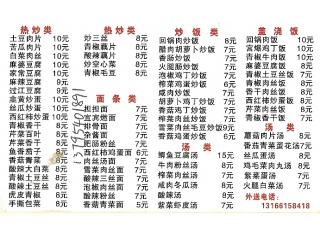 热炒类
土豆肉片 10元
苦瓜肉片 10元
白菜肉丝 10元
麻婆豆腐 10元
家常豆腐 10元
麻辣豆腐 9元
过江豆腐 9元
韭黄炒蛋 10元
丝瓜炒蛋 10元
西红柿炒蛋 10元
青椒香干 8元
芹菜百叶 8元
芹菜香干 8元
鱼香茄子 8元
香菇青菜 8元
酸辣大白菜 8元
酸辣土豆丝 8元
虎皮青椒 8元
手撕包菜 8元
热炒类
炒三丝 8元
青椒藕片 8元
酸辣藕片 8元
炒空心菜 8元
青椒毛豆 8元
13795401891
面条类
担担面 7元
宜宾燃面 7元
排骨面 7元
肥肠粉丝 7元
西红柿鸡蛋面 6元
肉丝汤面 7元
酸辣三丝面 7元
酸辣三鲜面 7元
榨菜肉丝面 7元
青椒肉丝面 7元
雪菜肉丝面 7元
香菇青菜面 7元
炒饭类
回锅肉炒饭 8元
腊肉胡萝卜炒饭 7元
香肠炒饭 7元
火腿炒饭 7元
泡椒鸡丁炒饭 7元
榨菜鸡蛋炒饭 6元
咸肉炒饭 7元
胡萝卜鸡丁炒饭 7元
榨菜肉丝炒饭 7元
雪菜肉丝毛豆炒饭 9元
香菇鸡蛋炒饭 6元
汤类
鲫鱼豆腐汤 15元
牛肉粉丝汤 7元
榨菜肉丝汤 7元
咸肉冬瓜汤 8元
酸辣汤 5元
紫菜虾皮汤 7元
盖浇饭
回锅肉饭 10元
宫爆鸡丁饭 10元
青椒牛肉饭 10元
麻婆豆腐饭 8元
青椒土豆丝饭 8元
青椒肉丝饭 9元
鱼香肉丝饭 9元
青椒香干饭 8元
西红柿炒蛋饭 8元
青椒炒蛋饭 8元
汤类
蘑菇肉片汤 8元
香菇青菜蛋花汤 7元
丝瓜蛋汤 8元
鸡毛菜肉丸汤 8元
紫菜蛋汤 7元
火腿白菜汤 7元
外送电话:
13166158418